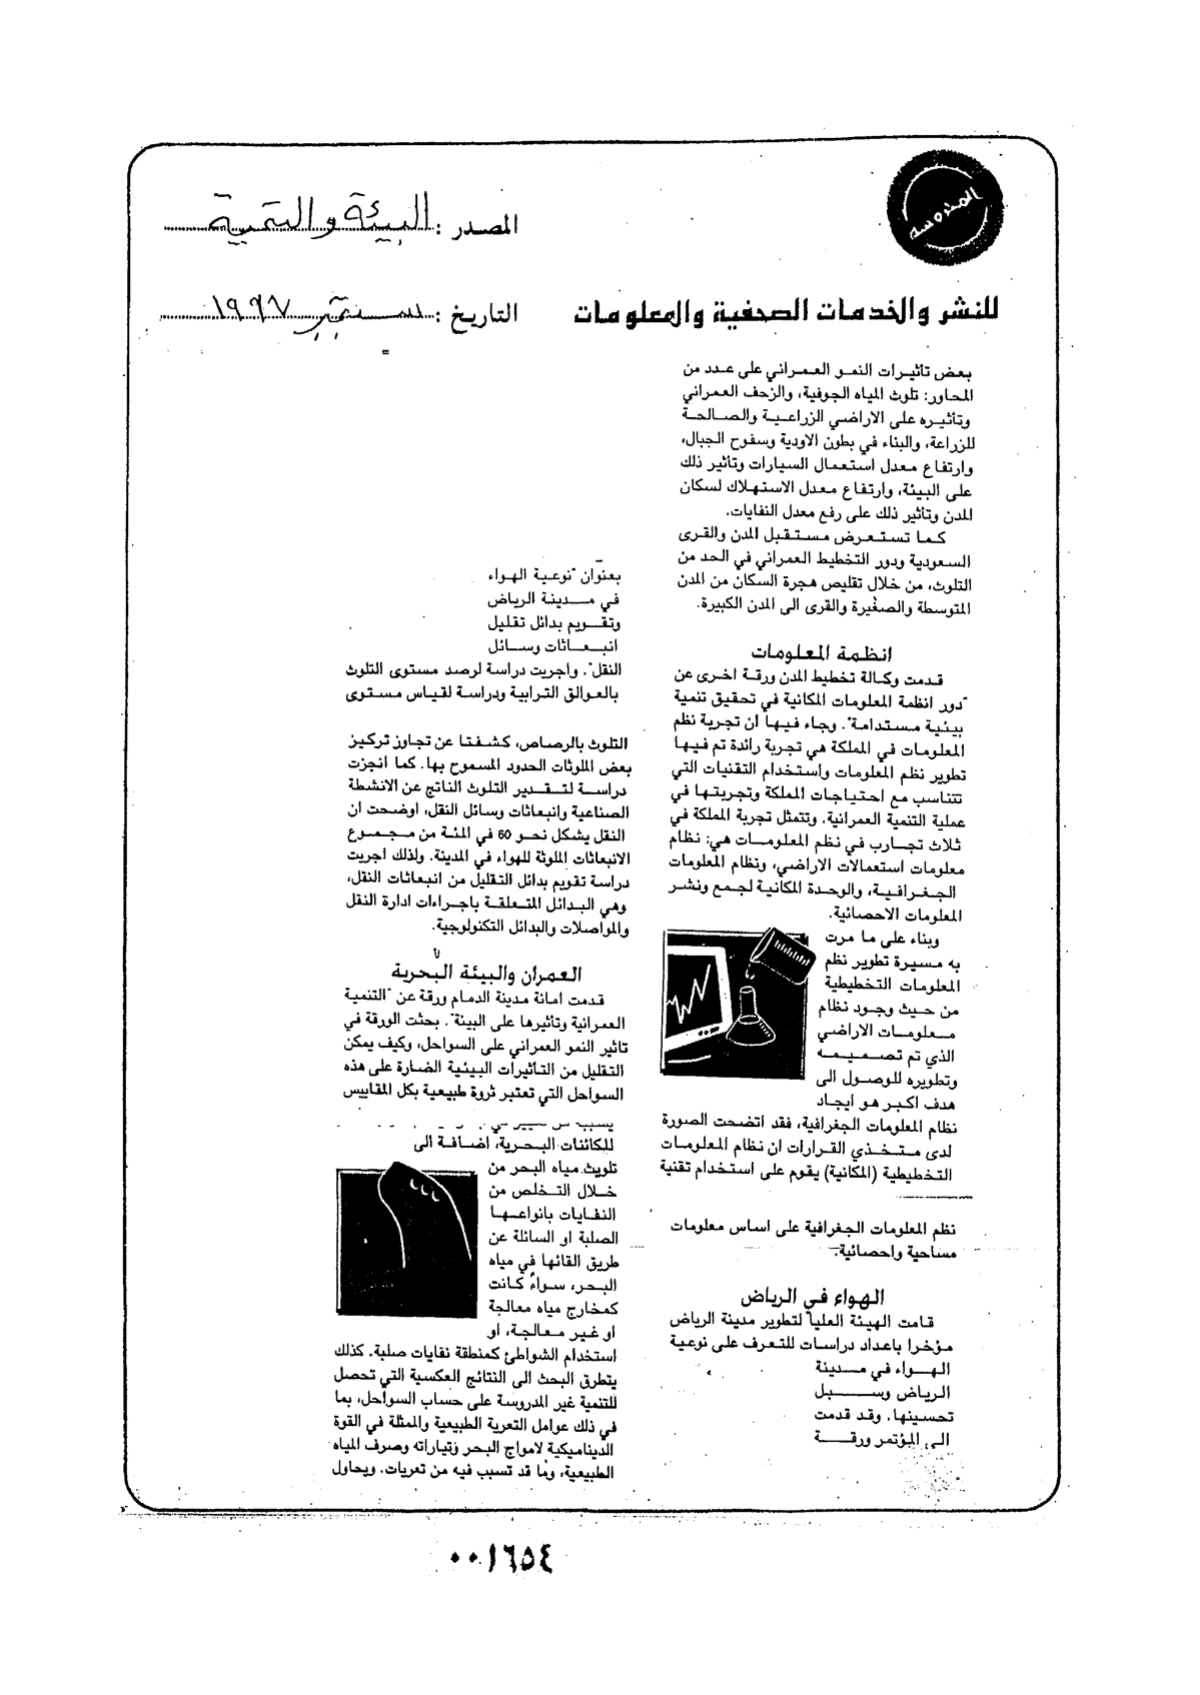 المحروسة
المصدر : البيئة والتنمية
للنشر والخدمات الصحفية والمعلومات
التاريخ : سبتمبر ١٩٩٧
بعض تأثيرات النمو العمراني على عدد من
المحاور: تلوث المياه الجوفية، والزحف العمراني
وتأثيره على الاراضي الزراعية والصالحة
للزراعة، والبناء في بطون الاودية وسفوح الجبال،
وارتفاع معدل استعمال السيارات وتأثير ذلك
على البيئة، وارتفاع معدل الاستهلاك لسكان
المدن وتأثير ذلك على رفع معدل النفايات.
كما تستعرض مستقبل المدن والقرى
السعودية ودور التخطيط العمراني في الحد من
التلوث، من خلال تقليص هجرة السكان من المدن
المتوسطة والصغيرة والقرى الى المدن الكبيرة.
انظمة المعلومات
قدمت وكالة تخطيط المدن ورقة اخرى عن
"دور انظمة المعلومات المكانية في تحقيق تنمية
بيئية مستدامة". وجاء فيها ان تجربة نظم
المعلومات في المملكة هي تجربة رائدة تم فيها
تطوير نظم المعلومات واستخدام التقنيات التي
تتناسب مع احتياجات المملكة وتجربتها في
عملية التنمية العمرانية. وتتمثل تجربة المملكة في
ثلاث تجارب في نظم المعلومات هي: نظام
معلومات استعمالات الاراضي، ونظام المعلومات
الجغرافية، والوحدة المكانية لجمع ونشر
المعلومات الاحصائية.
وبناء على ما مرت
به مسيرة تطوير نظم
المعلومات التخطيطية
من حيث وجود نظام
معلومات الاراضي
الذي تم تصميمه
وتطويره للوصول الى
هدف اكبر هو ايجاد
نظام المعلومات الجغرافية، فقد اتضحت الصورة
لدى متخذي القرارات ان نظام المعلومات
التخطيطية (المكانية) يقوم على استخدام تقنية
نظم المعلومات الجغرافية على اساس معلومات
مساحية واحصائية.
الهواء في الرياض
قامت الهيئة العليا لتطوير مدينة الرياض
مؤخرا باعداد دراسات للتعرف على نوعية
الهواء في مدينة
الرياض وسبل
تحسينها. وقد قدمت
الى المؤتمر ورقة
بعنوان "نوعية الهواء
في مدينة الرياض
وتقويم بدائل تقليل
انبعاثات وسائل
النقل". واجريت دراسة لرصد مستوى التلوث
بالعوالق الترابية ودراسة لقياس مستوى
التلوث بالرصاص، كشفتا عن تجاوز تركيز
بعض الملوثات الحدود المسموح بها. كما انجزت
دراسة لتقدير التلوث الناتج عن الانشطة
الصناعية وانبعاثات وسائل النقل، اوضحت ان
النقل يشكل نحو 60 في المئة من مجموع
الانبعاثات الملوثة للهواء في المدينة. ولذلك اجريت
دراسة تقويم بدائل التقليل من انبعاثات النقل،
وهي البدائل المتعلقة باجراءات ادارة النقل
والمواصلات والبدائل التكنولوجية.
العمران والبيئة البحرية
قدمت امانة مدينة الدمام ورقة عن "التنمية
العمرانية وتأثيرها على البيئة". بحثت الورقة في
تاثير النمو العمراني على السواحل، وكيف يمكن
التقليل من التأثيرات البيئية الضارة على هذه
السواحل التي تعتبر ثروة طبيعية بكل المقاييس
للكائنات البحرية، اضافة الى
تلويث مياه البحر من
خلال التخلص من
النفايات بانواعها
الصلبة او السائلة عن
طريق القائها في مياه
البحر، سواءً كانت
كمخارج مياه معالجة
او غير معالجة، او
استخدام الشواطئ كمنطقة نفايات صلبة. كذلك
يتطرق البحث الى النتائج العكسية التي تحصل
للتنمية غير المدروسة على حساب السواحل، بما
في ذلك عوامل التعرية الطبيعية والممثلة في القوة
الديناميكية لامواج البحر وتياراته وصرف المياه
الطبيعية، وما قد تسبب فيه من تعريات. ويحاول
٠٠١٦٥٤